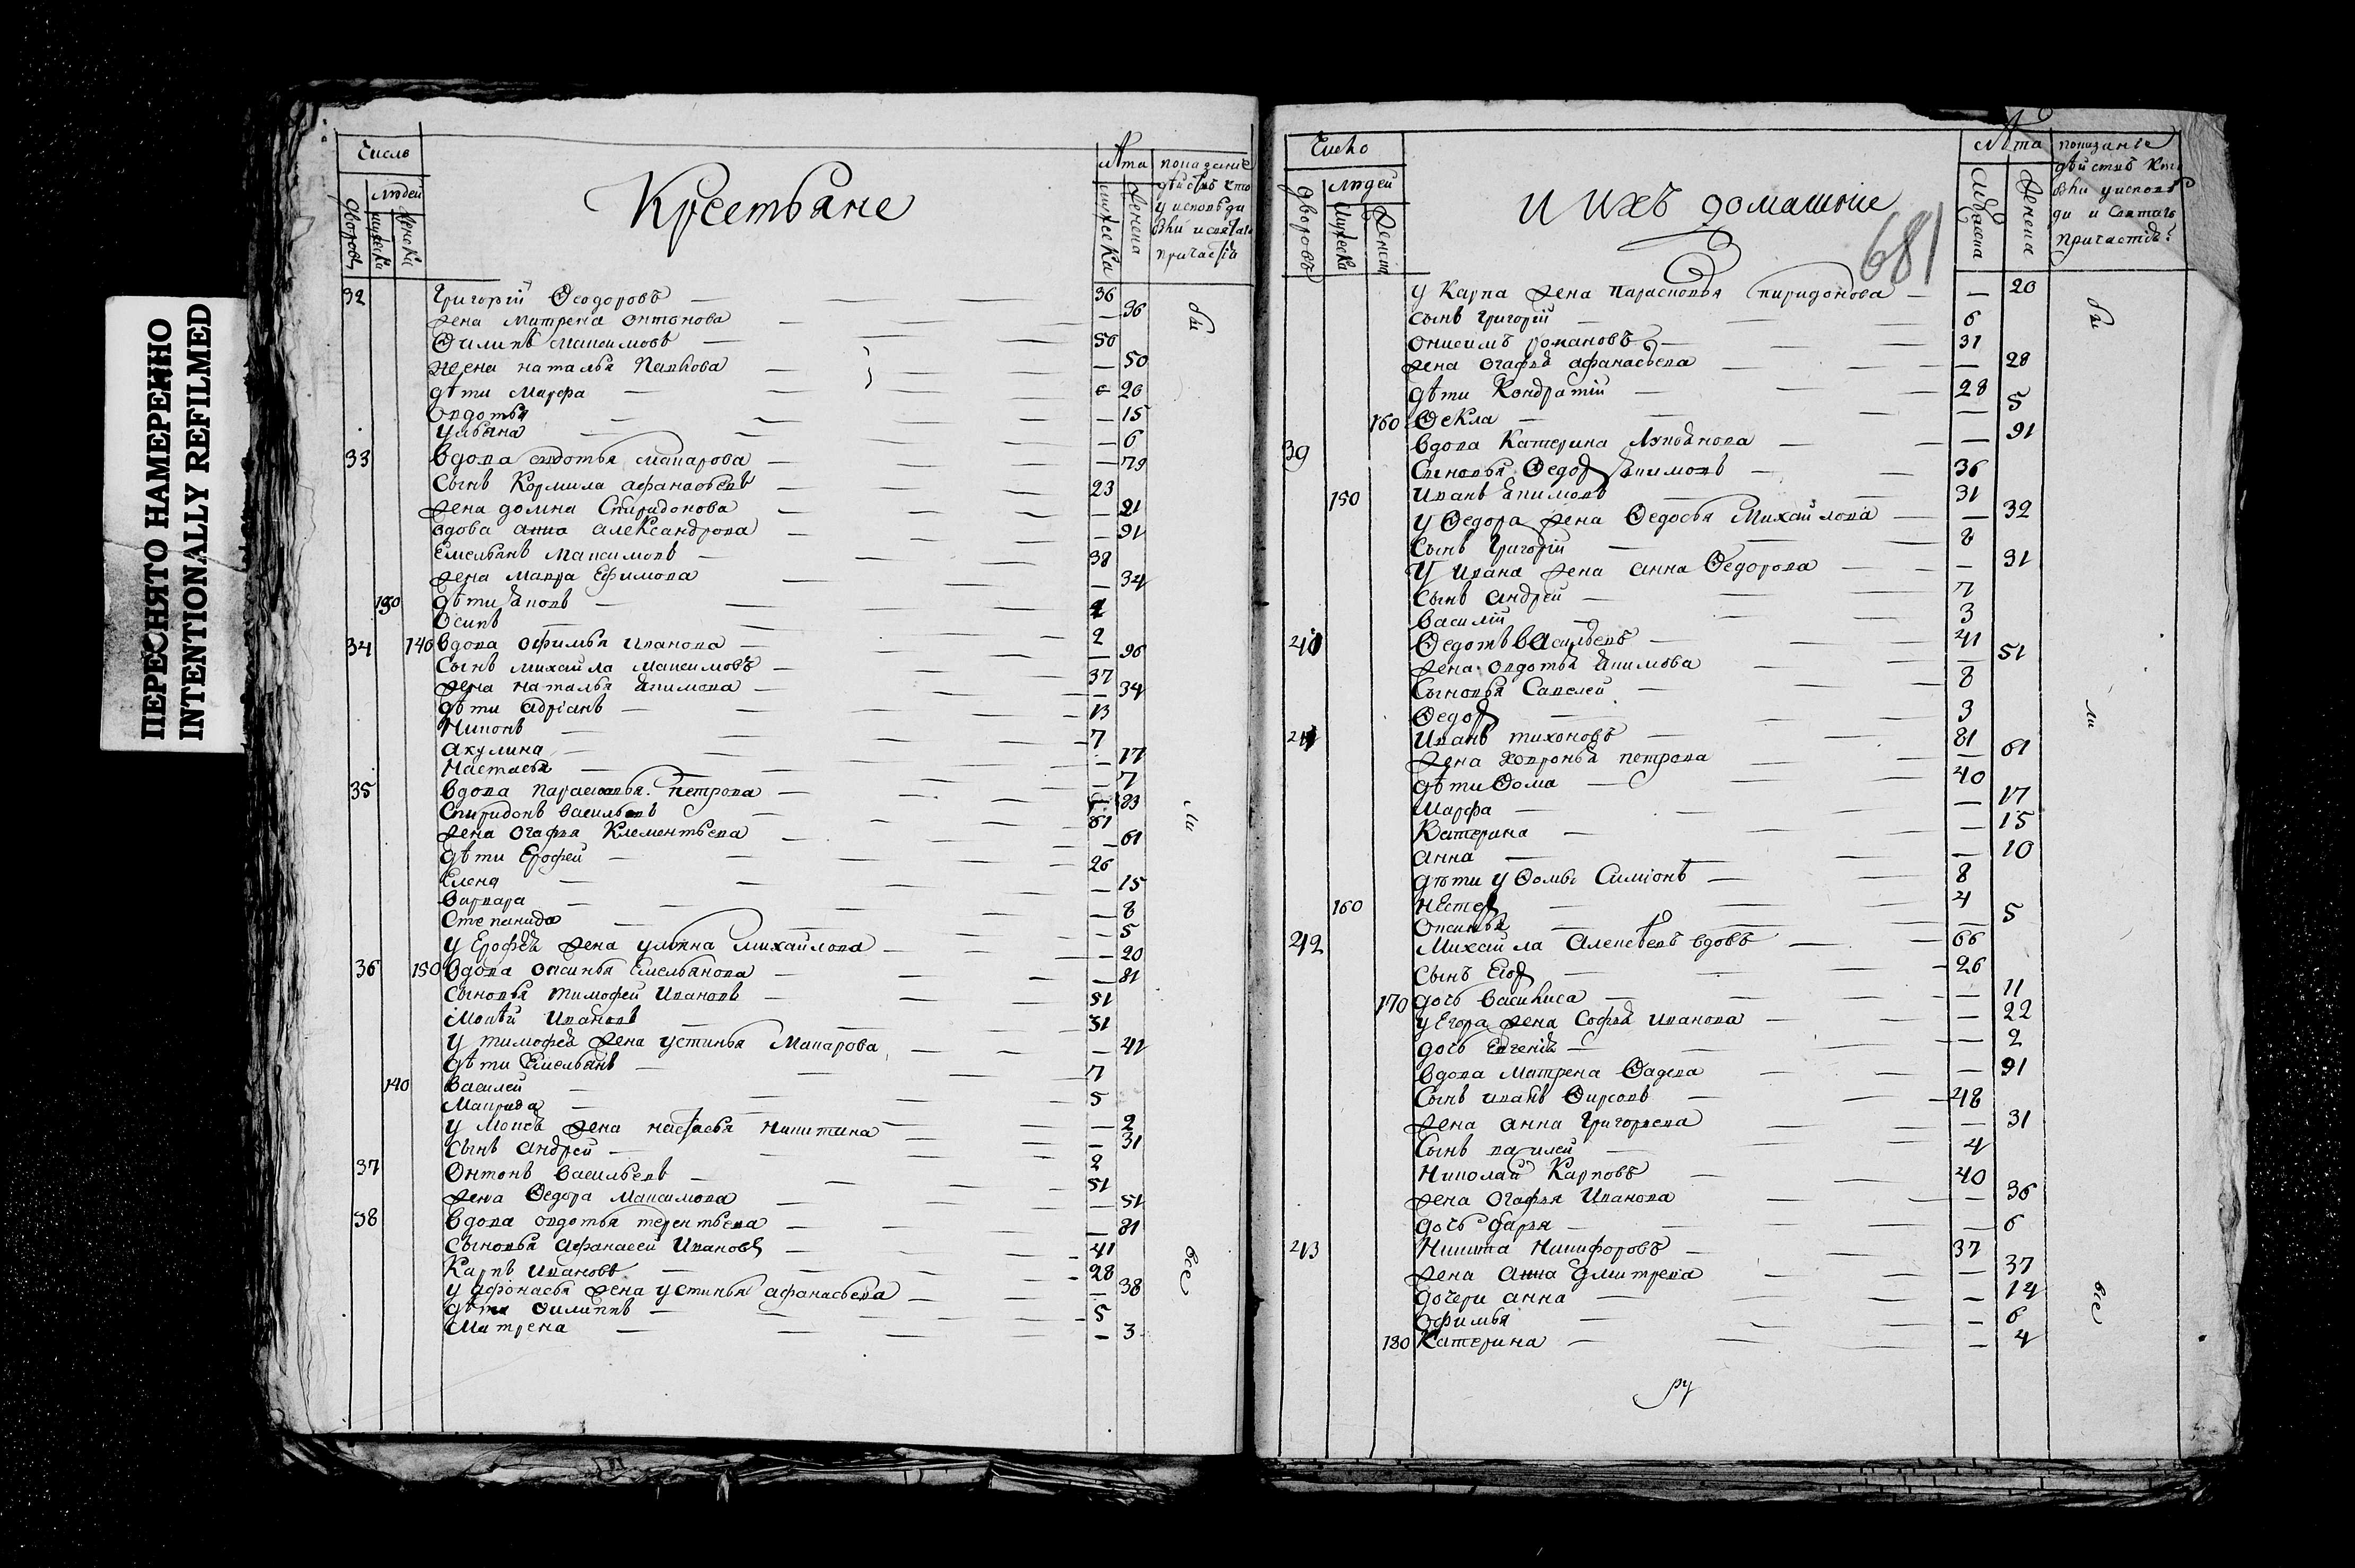 ПЕРЕСНЯТО НАМЕРЕННО
INTENTIONALLY REFILMED
Число
Дворовъ
людей
мужеска
женска
Крестьяне
лѣта
мужеска
женска
показаніе
дѣйствъ кто
у исповѣди
были и святаго
причастія
32 Григорій Ѳеодоровъ 36
жена Матрена Онтонова — 36
Ѳилипъ Макѕимовъ 50
жена наталья Павлова — 50
дѣти Марфа — 20
Овдотья — 15
Ульяна — 6
33 вдова овдотья макарова — 79
сынъ Кормила афанасьевъ 23
жена домна Спиридонова — 21
вдова анна александрова — 91
Емельянъ Максимовъ 38
жена Мавра Ефимова — 34
130 дѣти Яковъ
Осипъ 2
34 140 вдова Офимья иванова — 96
Сынъ михайла максимовъ 37
жена наталья Якимова — 34
дѣти адріанъ 13
Никонъ 7
акулина — 17
Настасья — 7
35 вдова парасковья петрова — 83
Спиридонъ васильевъ 61
жена огафья Клементьева — 61
дѣти Ерофей 26
Елена — 15
варвара — 8
Степанида — 5
у Ерофея жена ульяна михайлова — 20
36 150 вдова оксинья Емельянова — 81
сыновья тимофей ивановъ 51
Мокѣй ивановъ 31
у тимофея жена устинья Макарова — 41
дѣти Емельянъ 7
140 василей 5
Маврида — 2
у Мокея жена настасья никитина — 31
сынъ андрей 2
37 Онтонъ васильевъ 51
жена Ѳедора максимова — 51
38 вдова овдотья терентьева — 81
сыновья афанасей ивановъ 41
Карпъ ивановъ 28
у афонасья жена устинья афанасьева — 38
дѣти Ѳилиппъ 5
Матрена — 3
бы
ли
все
Число
дворовъ
людей
мужеска
женска
и ихъ домашніе
681
лѣта
мужеска
женска
показаніе
дѣйствъ кто
были у исповѣ
ди и святаго
причастія
у Карпа жена параскопья спиридонова — 20
сынъ григорій 6
онисимъ романовъ 31
жена огафья афанасьева — 28
дѣти Кондратій 28
160 Ѳекла — 5
39 вдова Катерина Лукоянова — 91
Сыновья Ѳедоръ Якимовъ 36
150 иванъ Якимовъ 31
у Ѳедора жена Ѳедосья Михайлова — 32
Сынъ григорій 8
у ивана жена анна Ѳедорова — 31
сынъ андрей 7
василій 3
40 Ѳедотъ васильевъ 41
жена овдотья Якимова — 51
Сыновья Савелей 8
Ѳедоръ 3
41 иванъ тихоновъ 81
жена ховронья петрова — 61
дѣти Ѳома 40
Марфа — 17
Катерина — 15
анна — 10
дѣти у Ѳомы Симіонъ 8
160 нестеръ 4
Оксинья — 5
42 Михайла алексѣевъ вдовъ 66
сынъ Егоръ 26
170 дочь василиса — 11
у Егора жена Софья иванова — 22
дочь Евгенія — 2
вдова Матрена Ѳадеева — 91
Сынъ иванъ Ѳирсовъ 48
жена анна григорьева — 31
сынъ василей 4
Николай Карповъ 40
жена огафья иванова — 36
дочь дарья — 6
43 Никита Никифоровъ 37
жена анна дмитрева — 37
дочери анна — 14
Офимья — 6
180 Катерина — 4
бы
ли
все